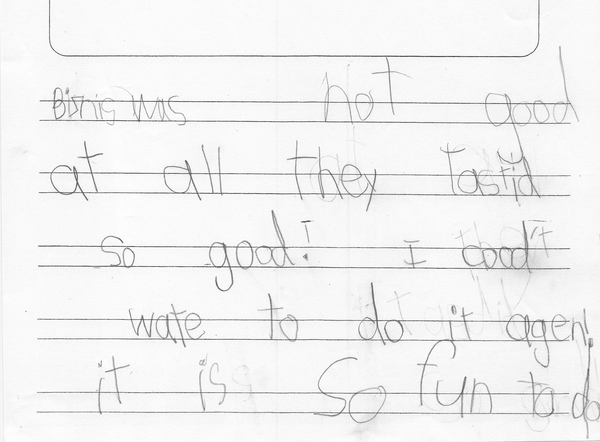 Bisnis wus not good
at all they tastid
so good! I cood't
wate to do it agen!
it is so fun to do